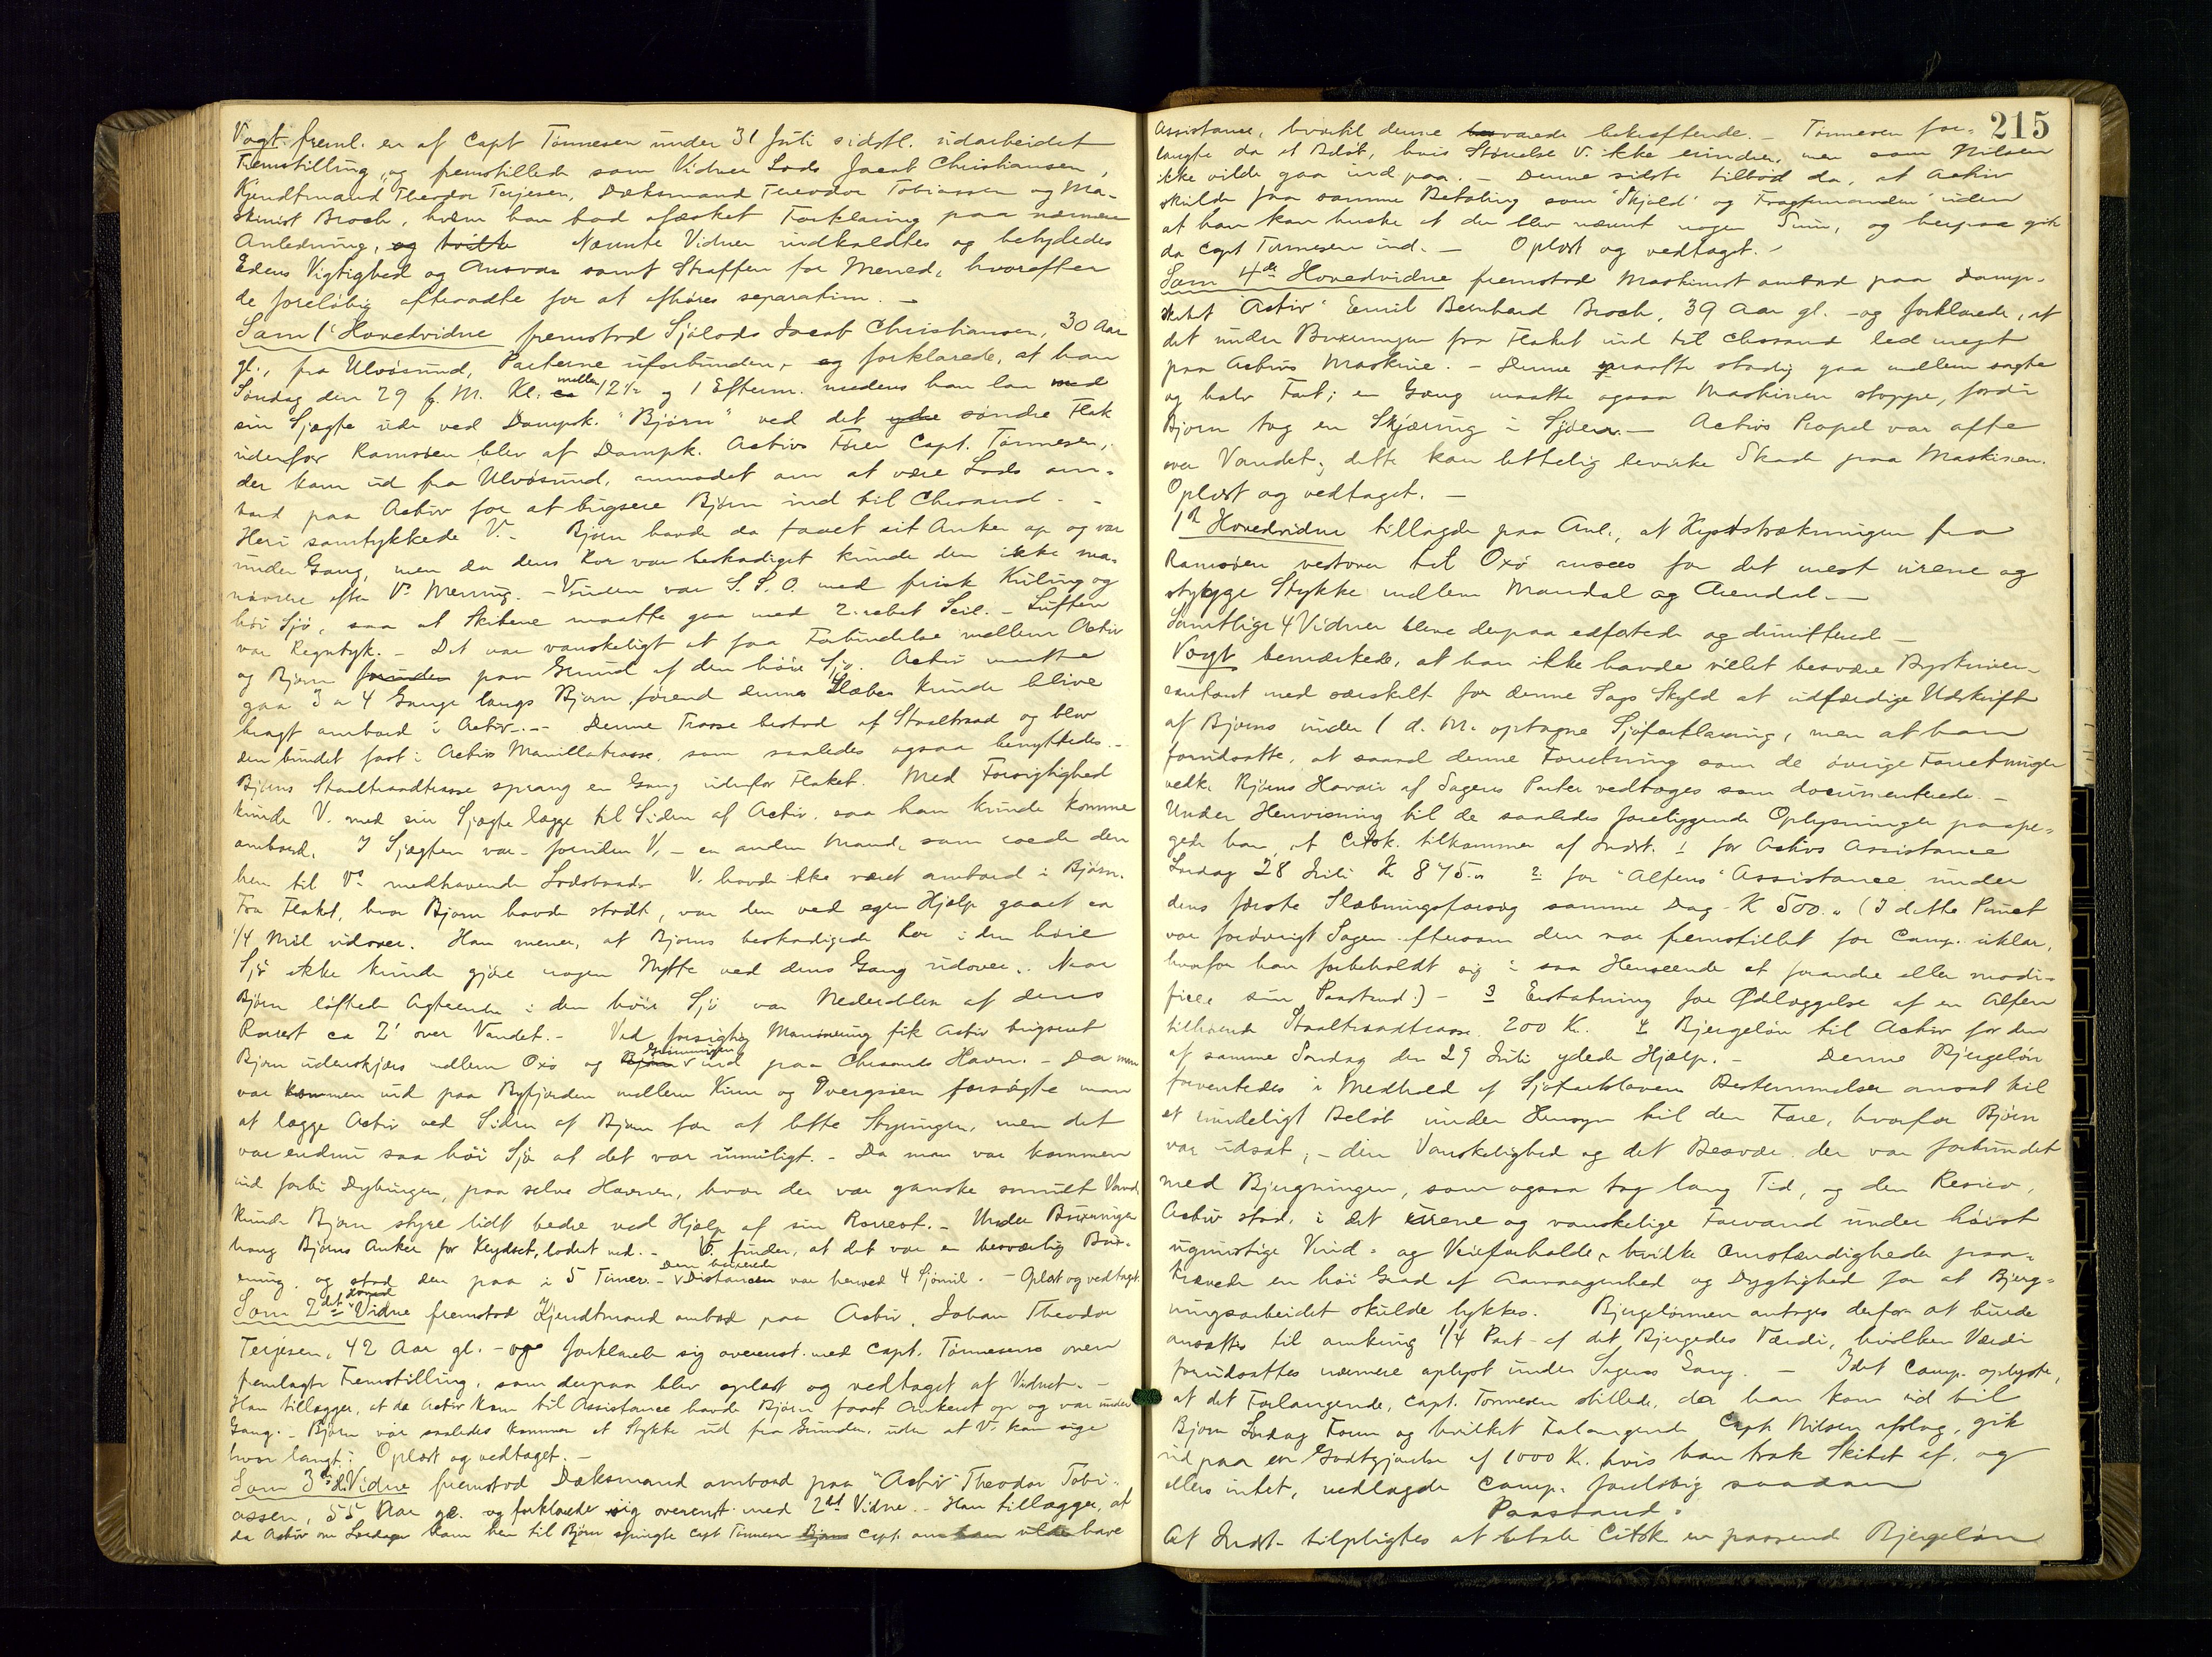 Vogt freml. en af Capt Tönnesen under 31 Juli sidstl. udarbeidet
Fremstilling, og fremstillede som Vidner Lods Jacob Christiansen,
Kjendtmand Theodor Terjesen, Dæksmand Theodor Tobiassen og Ma-
skinist Broch, hvem han bad afæsket Forklaring paa nærmere
Anledning, og hvilke Nævnte Vidner indkaldtes og betydedes
Edens Vigtighed og Ansvar samt Straffen for Mened, hvorefter
de foreløbig aftraadte for at afhøres separatim. —
Som 1ste Hovedvidne fremstod Sjölods Jacob Christiansen, 30 Aar
gl., fra Ulvösund, Parterne uforbunden, og forklarede, at han
Söndag den 29 f. M. Kl. ca mellem 12½ og 1 Efterm. medens han laa med
sin Sjægte ude ved Dampsk. "Bjørn" ved det ydre søndre Flak
udenfor Ramsöen blev af Dampsk. Activs Fører Capt. Tönnesen,
der kom ud fra Ulvösund, anmodet om at være Lods om-
bord paa Activ for at bugsere Bjørn ind til Chrsand. -
Heri samtykkede V. - Bjørn havde da faaet sit Anker op og var
under Gang, men da dens Ror var beskadiget kunde den ikke ma-
növrere efter Vs Mening. - Vinden var S. S. O. med frisk Kuling og
höi Sjö, saa at Skibene maatte gaa med 2-rebet Seil. - Luften
var Regntyk. - Det var vanskeligt at faa Forbindelse mellem Activ
og Bjørn foruden paa Grund af den höie Sjö. Activ maatte
gaa 3 a 4 Gange langs Bjørn, førend dennes Slæber kunde blive
bragt ombord i Activ. - Denne Trosse bestod af Staaltraad og blev
den bundet fast i Activs Manillatrosse, som saaledes ogsaa benyttedes. -
Bjørns Staaltraadtrosse sprang en Gang udenfor Flaket. Med Forsigtighed
kunde V. med sin Sjægte lægge til Siden af Activ, saa han kunde komme
ombord. I Sjægten var - foruden V. - en anden Mand, som roede den
hen til Vs medhavende Lodsbaad. V. havde ikke været ombord i Bjørn.
Fra Flaket, hvor Bjørn havde stødt, var den ved egen Hjælp gaaet ca
1/4 Mil udover. Han mener, at Bjørns beskadigede Ror i den höie
Sjö ikke kunde gjöre nogen Nytte ved dens Gang udover. Naar
Bjørn løftede Agterenden i den höie Sjö var Nederdelen af dens
Rorrest ca 2' over Vandet. - Ved forsigtig Manövrering fik Activ bugseret
Bjørn udenskjærs mellem Oxö og Bjørn Grønningen ind paa Chrsands Havn. - Da man
var kommen ind paa Byfjorden mellem Kinn og Dvergsöen forsøgte man
at lægge Activ ved Siden af Bjørn for at lette Styringen, men det
var endnu saa höi Sjö at det var umuligt. - Da man var kommen
ind forbi Dybingen, paa selve Havnen, hvor der var ganske smult Vand
kunde Bjørn styre lidt bedre ved Hjælp af sin Rorrest. - Under Buxeringen
hang Bjørns Anker for Klydset, lodret ned. - V. finder, at det var en besværlig Bux-
ering, og stod den paa i 5 Timer. - Den buxerede Distancen var herved 4 Sjömil. - Oplæst og vedtaget.
Som 2det Hoved Vidne fremstod Kjendtmand ombord paa Activ, Johan Theodor
Terjesen, 42 Aar gl. - og forklarede sig overenst. med Capt. Tönnesens oven
fremlagte Fremstilling, som derpaa blev oplæst og vedtaget af Vidnet. -
Han tillægger, at da Activ kom til Assistance havde Bjørn faaet Ankeret op og var under
Gang. - Bjørn var saaledes kommen et Stykke ud fra Grunden, uden at V. kan sige
hvor langt. Oplæst og vedtaget. -
Som 3die H.Vidne fremstod Dæksmand ombord paa "Activ" Theodor Tobi-
assen, 55 Aar gl. og forklarede sig overenst. med 2det Vidne. - Han tillægger, at
da Activ om Lördagen kom hen til Bjørn spurgte Capt Tönnesen Bjørns Capt. om han vilde have
215
Assistance, hvortil denne besvarede bekræftende. - Tönnesen for-
langte da et Belöb, hvis Størrelse V. ikke erindrer, men som Nilsen
ikke vilde gaa ind paa. - Denne sidste tilbød da, at Activ
skulde faa samme Betaling som "Skjold" og Fragtmanden uden
at han kan huske at der blev nævnt nogen Sum, og herpaa gik
da Capt Tönnesen ind. - Oplæst og vedtaget. -
Som 4de Hovedvidne fremstod Maskinist ombord paa Damp-
skibet "Activ" Emil Bernhard Broch, 39 Aar gl. - og forklarede, at
det under Buxeringen fra Flaket ind til Chrsand led meget
paa Activs Maskine. - Denne maatte stadig gaa mellem sagte
og halv Fart; en Gang maatte ogsaa Maskinen stoppe, fordi
Bjørn tog en Skjæring i Sjöen. - Activs Propel var ofte
over Vandet; dette kan lettelig bevirke Skade paa Maskinen.
Oplæst og vedtaget. -
1ste Hovedvidne tillagde paa Anl., at Kyststrækningen fra
Ramsöen vestover til Oxö ansees for det mest urene og
stygge Stykke mellem Mandal og Arendal. -
Samtlige 4 Vidner bleve derpaa edfæstede og dimitterede -
Vogt bemærkede, at han ikke havde villet besvære Byskriver-
embedet med særskilt for denne Sags Skyld at udfærdige Udskrift
af Bjørns under 1 d. M. optagne Sjöforklaring, men at han
forudsatte, at saavel denne Forretning som de övrige Forretninger
vedk. Bjørns Havari af Sagens Parter vedtages som documenterede. -
Under Henvisning til de saaledes foreliggende Oplysninger paape-
gede han, at Citsk. tilkommer af Indst. 1 for Activs Assistance
Lördag 28 Juli Kr 875.00 2. for "Alfens" Assistance under
dens første Slæbningsforsøg samme Dag - K 500.00 (I dette Punct
var forøvrigt Sagen eftersom den var fremstillet for Comp. uklar,
hvorfor han forbeholdt sig i saa Henseende at forandre eller modi-
ficere sin Paastand.) - 3 Erstatning for Ødlæggelse af en Alfen
tilhørende Staaltraadtrosse 200 K. 4 Bjergelön til Activ for den
af samme Söndag den 29 Juli ydede Hjælp. - Denne Bjergelön
forventedes i Medhold af Sjöfartslovens Bestemmelser ansat til
et rundeligt Belöb under Hensyn til den Fare, hvorfor Bjørn
var udsat, - den Vanskelighed og det Besvær der var forbundet
med Bjergningen, som ogsaa tog lang Tid, og den Resico,
Activ stod, i det urene og vanskelige Farvand under höist
ugunstige Vind- og Veirforholde, hvilke Omstændigheder paa-
krævede en höi Grad af Aarvaagenhed og Dygtighed for at Bjerg-
ningsarbeidet skulde lykkes. Bjergelønnen antoges derfor at burde
ansættes til omkring 1/4 Part af det Bjergedes Værdi, hvilken Værdi
forudsattes nærmere oplyst under Sagens Gang. - Idet Comp. oplyste,
at det Forlangende, Capt. Tönnesen stillede, der han kom ud til
Bjørn Lördag Form og hvilket Forlangende Capt. Nilsen afslog, gik
ud paa en Godtgjørelse af 1000 K. hvis han trak Skibet af, og
ellers intet, nedlagde Comp. foreløbig saadan
Paastand:
At Indst. tilpligtes at betale Citsk. en passende Bjergelön